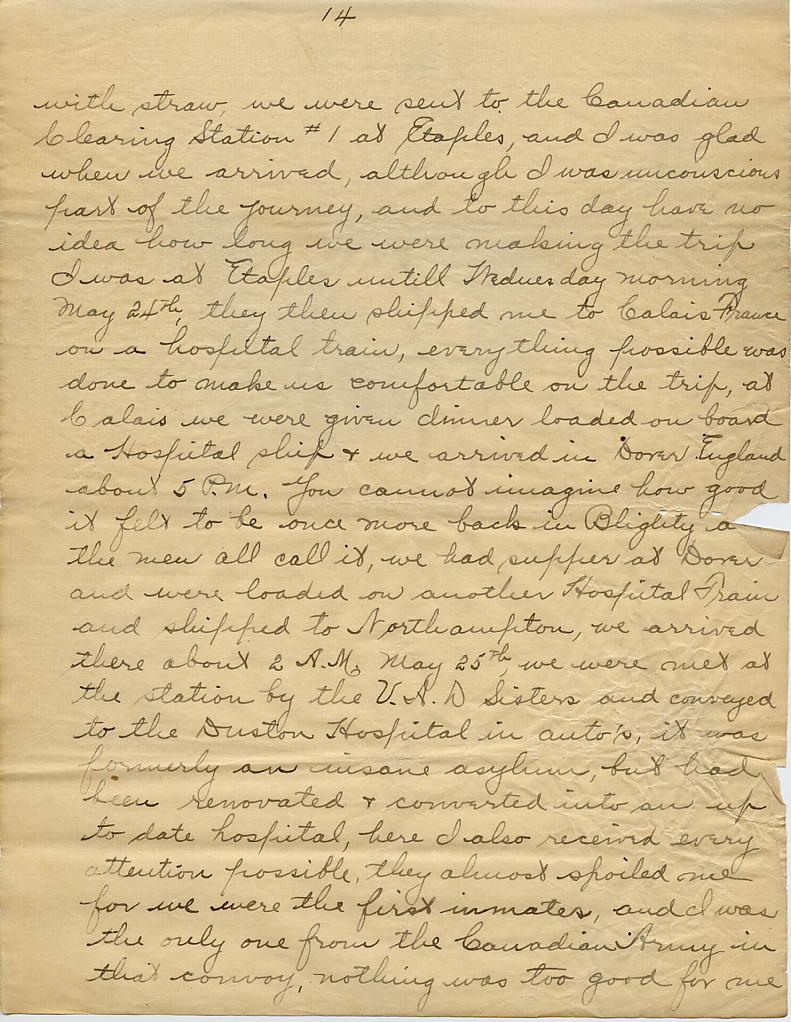 14
with straw, we were sent to the Canadian
Clearing Station #1 at Etaples, and I was glad
when we arrived, although I was unconscious
part of the journey, and to this day have no
idea how long we were making the trip
I was at Etaples untill Wednesday morning
May 24th, they then shipped me to Calais France
on a hospital train, everything possible was
done to make us comfortable on the trip, at
Calais we were given dinner loaded on board
a Hospital ship & we arrived in Dover England
about 5 P.M. You cannot imagine how good
it felt to be once more back in Blighty a
the men all call it, we had supper at Dover
and were loaded on another Hospital Train
and shipped to Northampton, we arrived
there about 2 A.M. May 25th, we were met at
the station by the V.A.D Sisters and conveyed
to the Duston Hospital in auto's, it was
formerly an insane asylum, but had
been renovated & converted into an up
to date hospital, here I also received every
attention possible, they almost spoiled me
for we were the first inmates, and I was
the only one from the Canadian Army in
that convoy, nothing was too good for me